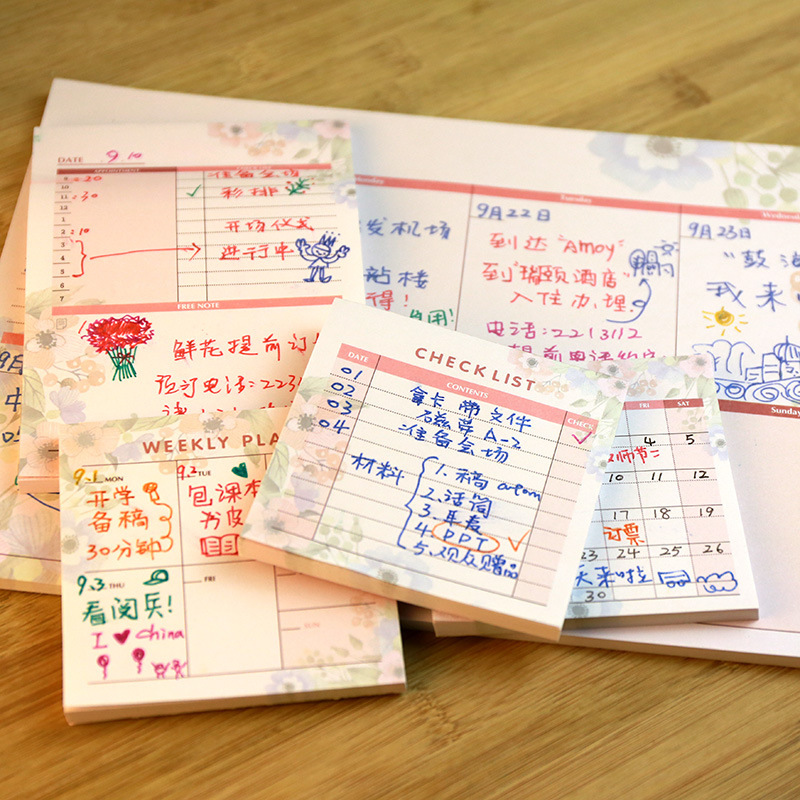 DATE 9.10
APPOINTMENT
9 :20 准备会场
10
11 :30 彩排
12
1 开场仪式
2 :10
3 进行中
4
5
6
7
FREE NOTE
鲜花提前订
预订电话:223
Monday
发机场
站楼
得!
Tuesday
9月22日
到达"Amoy"
到"瑞颐酒店"
入住办理.
电话:2213112
提前电话约定
Wednesday
9月23日
"鼓
我来
Sunday
CHECKLIST
DATE CONTENTS CHECK
01 拿卡带文件
02
03 准备会场
04
材料
1.稿
2.话筒
3.耳麦
4.PPT
5.观众赠品
WEEKLY PLA
9.1 MON
开学
备稿
30分钟
9.2 TUE
包课本
书皮
9.3 THU
看阅兵!
I ♥ China
FRI
SUN
FRI SAT
4 5
师节
10 11 12
17 18 19
订票
23 24 25 26
天来啦
30